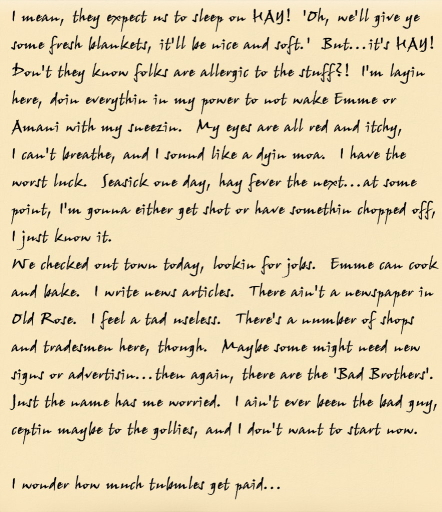 I mean, they expect us to sleep on HAY!  'Oh, we'll give ye
some fresh blankets, it'll be nice and soft.'  But...it's HAY!
Don't they know folks are allergic to the stuff?!  I'm layin
here, doin everythin in my power to not wake Emme or
Amani with my sneezin.  My eyes are all red and itchy,
I can't breathe, and I sound like a dyin moa.  I have the
worst luck.  Seasick one day, hay fever the next...at some
point, I'm gonna either get shot or have somethin chopped off,
I just know it.
We checked out town today, lookin for jobs.  Emme can cook
and bake.  I write news articles.  There ain't a newspaper in
Old Rose.  I feel a tad useless.  There's a number of shops
and tradesmen here, though.  Maybe some might need new
signs or advertisin...then again, there are the 'Bad Brothers'.
Just the name has me worried.  I ain't ever been the bad guy,
ceptin maybe to the gollies, and I don't want to start now.
I wonder how much tubmles get paid...